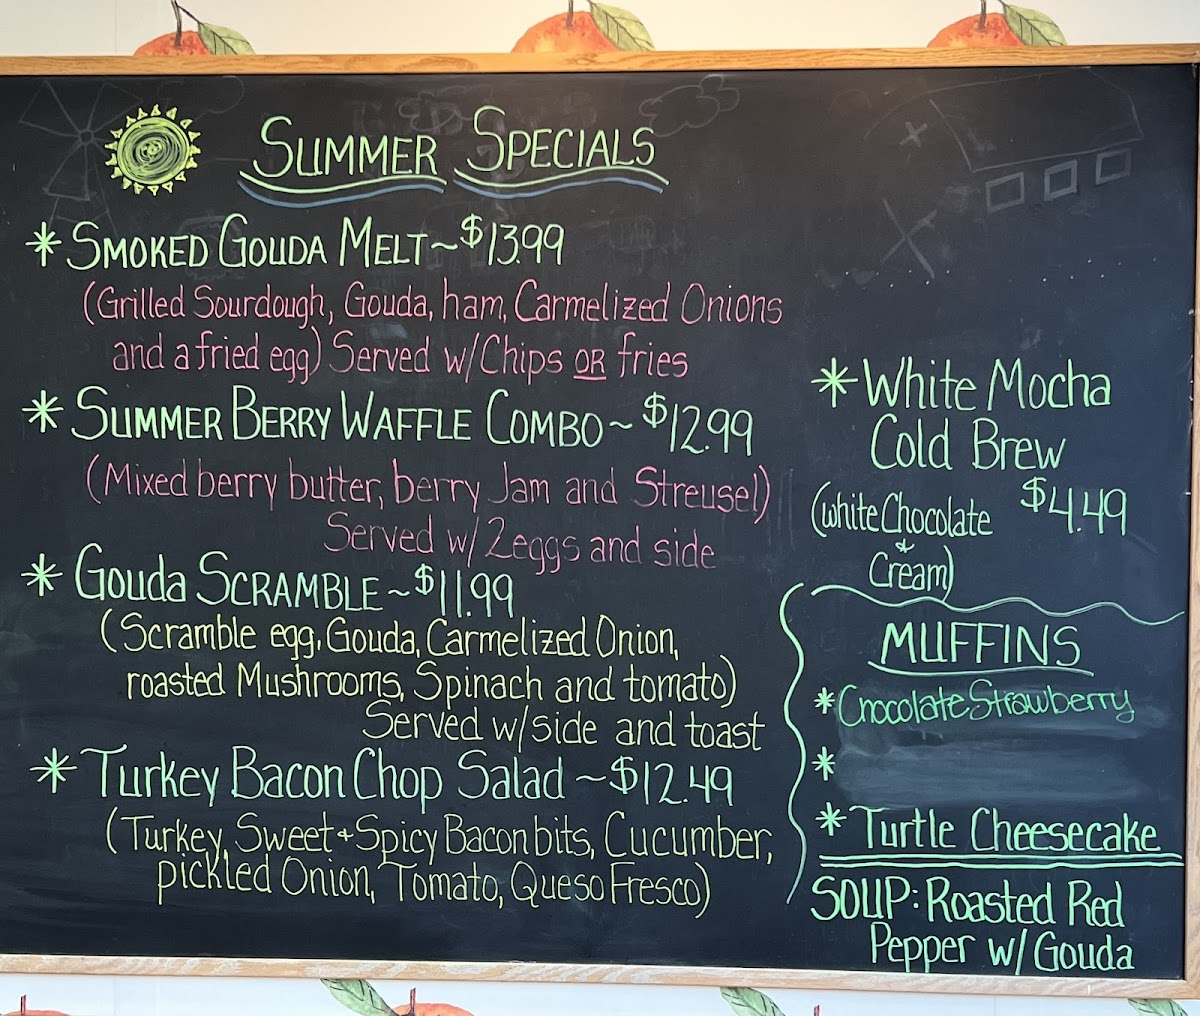 SUMMER SPECIALS
* SMOKED GOUDA MELT ~ $13.99
(Grilled Sourdough, Gouda, ham, Carmelized Onions
and a fried egg) Served w/Chips OR fries
* SUMMER BERRY WAFFLE COMBO ~ $12.99
(Mixed berry butter, berry Jam and Streusel)
Served w/ 2 eggs and side
* Gouda SCRAMBLE ~ $11.99
(Scramble egg, Gouda, Carmelized Onion,
roasted Mushrooms, Spinach and tomato)
Served w/side and toast
* Turkey Bacon Chop Salad ~ $12.49
(Turkey, Sweet + Spicy Bacon bits, Cucumber,
pickled Onion, Tomato, Queso Fresco)
* White Mocha
Cold Brew
(white Chocolate $4.49
&
Cream)
MUFFINS
* Chocolate Strawberry
*
* Turtle Cheesecake
SOUP: Roasted Red
Pepper w/ Gouda